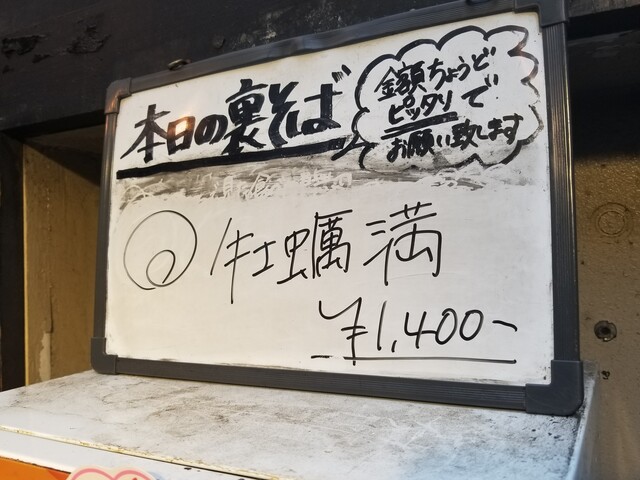 本日の裏そば
金額ちょうど
ピッタリで
お願い致します
牡蠣満
¥1,400-